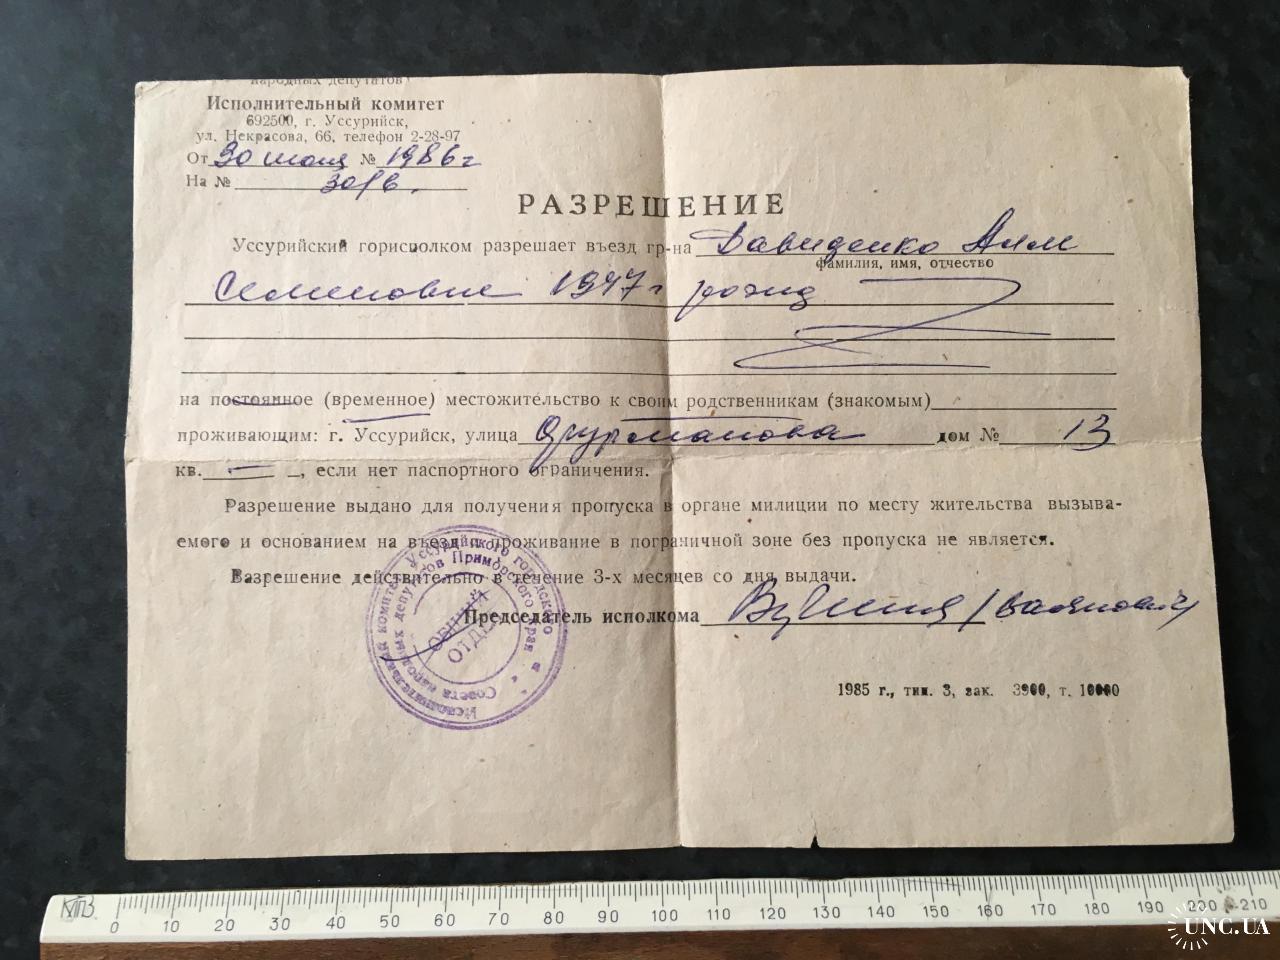 народных депутатов
Исполнительный комитет
692500, г. Уссурийск,
ул. Некрасова, 66, телефон 2-28-97
От 30 июля № 1986 г
На №
РАЗРЕШЕНИЕ
Уссурийский горисполком разрешает въезд гр-на Давиденко
фамилия, имя, отчество
Семеновне 1947 г рожд
на постоянное (временное) местожительство к своим родственникам (знакомым)
проживающим: г. Уссурийск, улица Фурманова дом № 13
кв. — , если нет паспортного ограничения.
Разрешение выдано для получения пропуска в органе милиции по месту жительства вызыва-
емого и основанием на въезд и проживание в пограничной зоне без пропуска не является.
Разрешение действительно в течение 3-х месяцев со дня выдачи.
Председатель исполкома
Исполнительный комитет Уссурийского городского
Совета народных депутатов Приморского края
ОБЩИЙ
ОТДЕЛ
1985 г., тип. 3, зак. 3900, т. 10000
0 10 20 30 40 50 60 70 80 90 100 110 120 130 140 150 160 170 180 190 200 210
UNC.UA